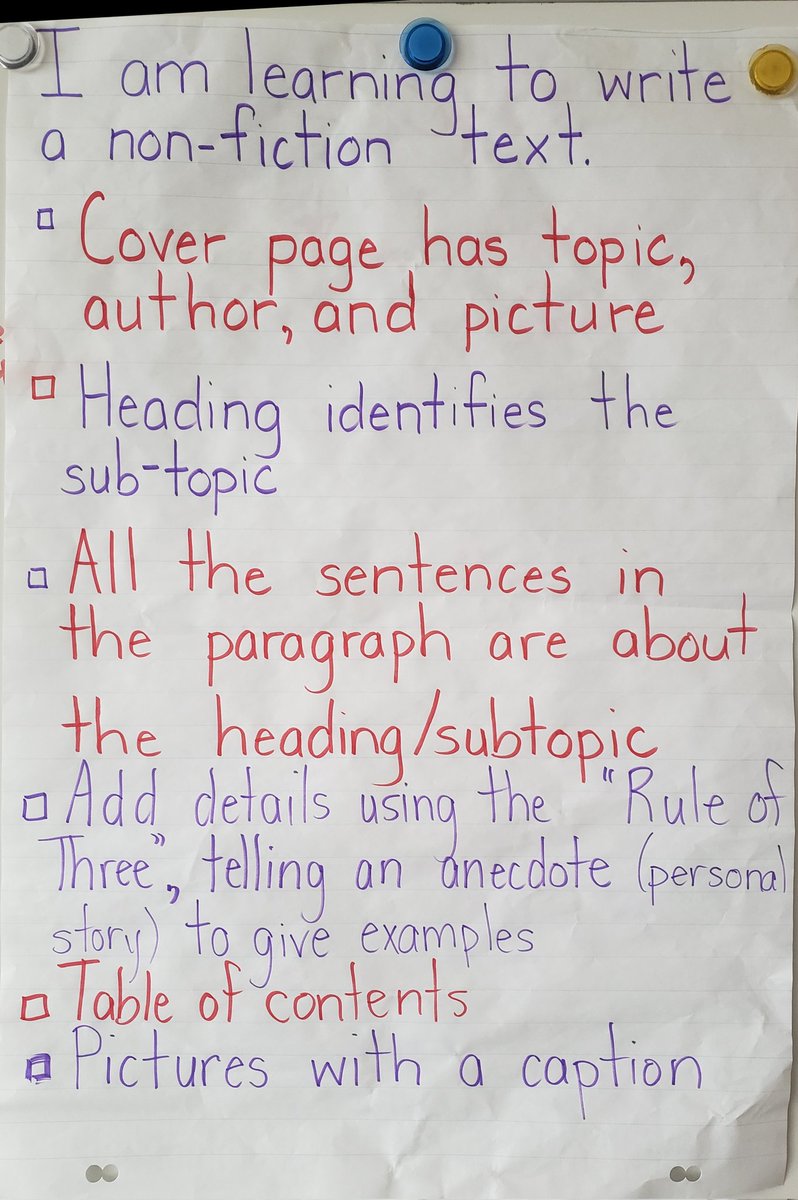 I am learning to write
a non-fiction text.
Cover page has topic,
author, and picture
Heading identifies the
sub-topic
All the sentences in
the paragraph are about
the heading/subtopic
Add details using the "Rule of
Three", telling an anecdote (personal
story) to give examples
Table of contents
Pictures with a caption